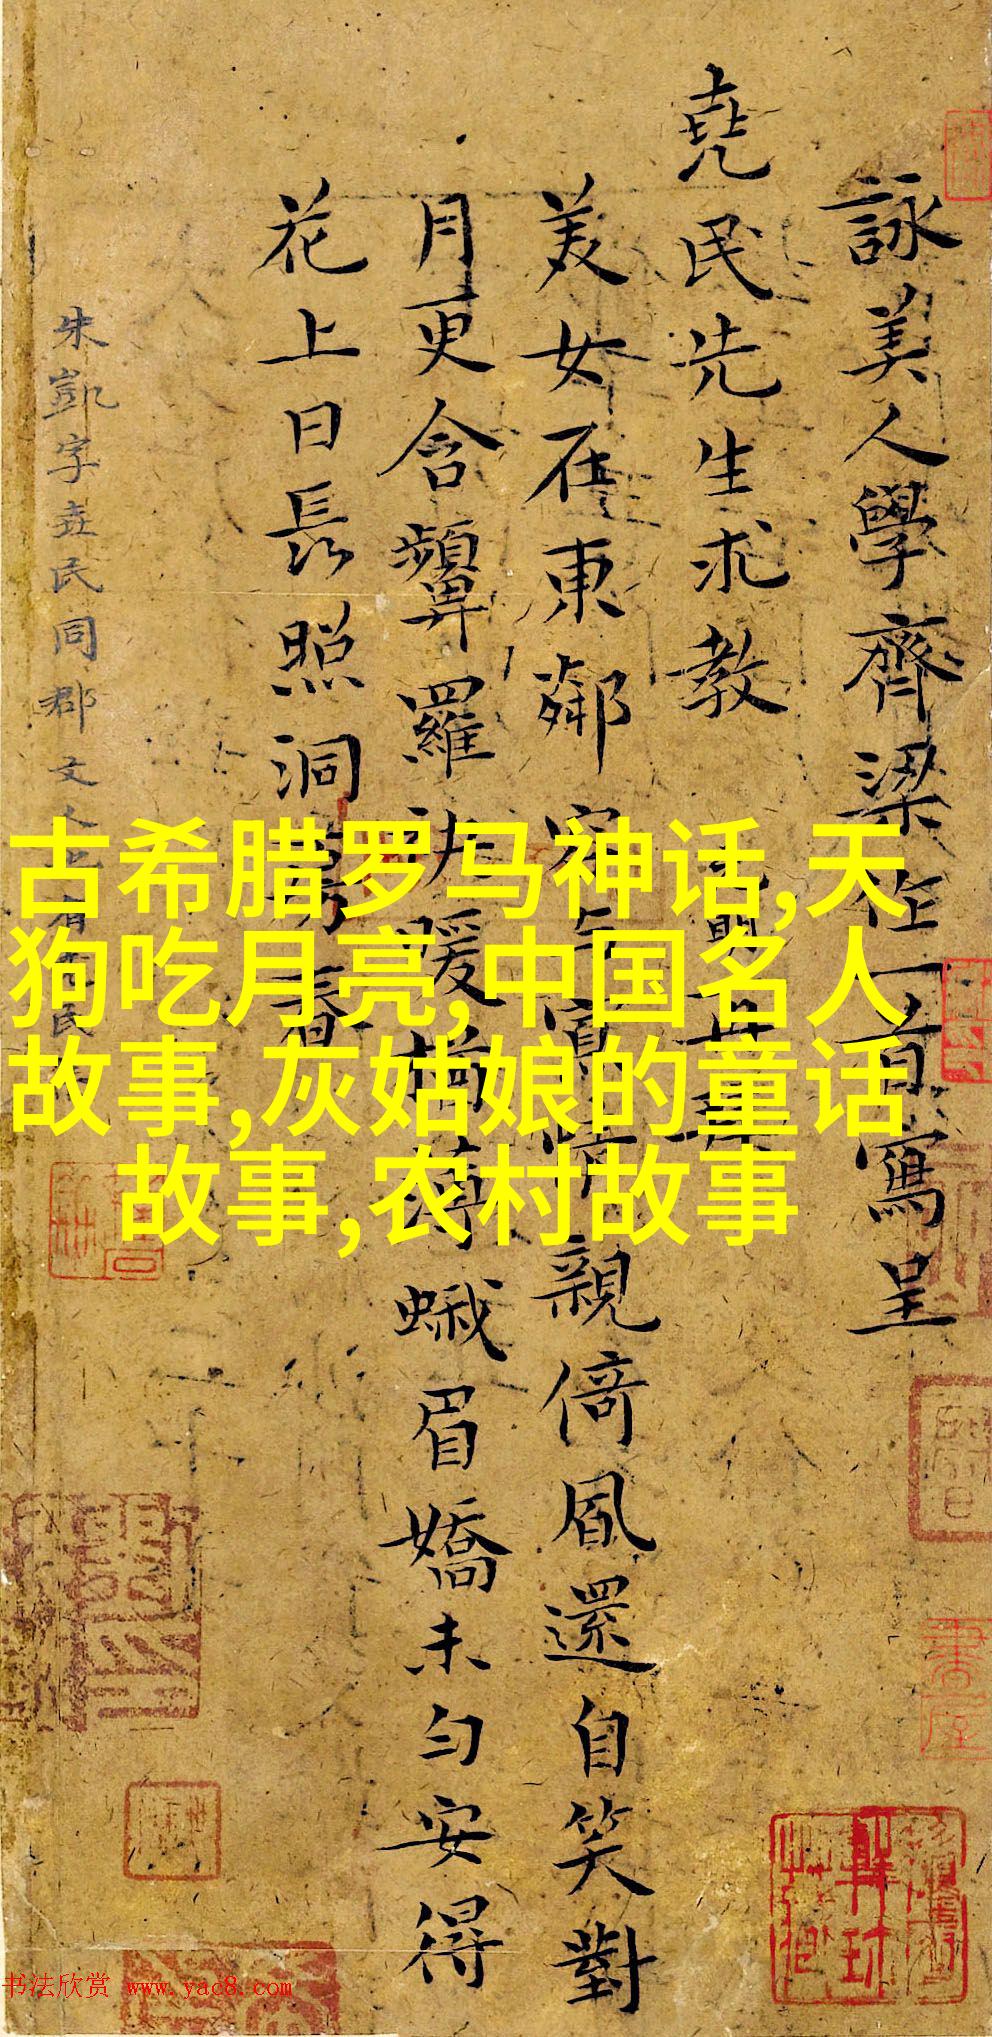 詠美人學齊梁作一首寫呈
堯民先生求教
美女在東鄰容与情親倚風還自笑對
月更含顰羅袂暖猶薄蛾眉嬌未勻安得
花上日長照洞房春
朱凱字堯民同郡文人
古希腊罗马神话,天
狗吃月亮,中国名人
故事,灰姑娘的童话
故事,农村故事
书法欣赏 www.yac8.com